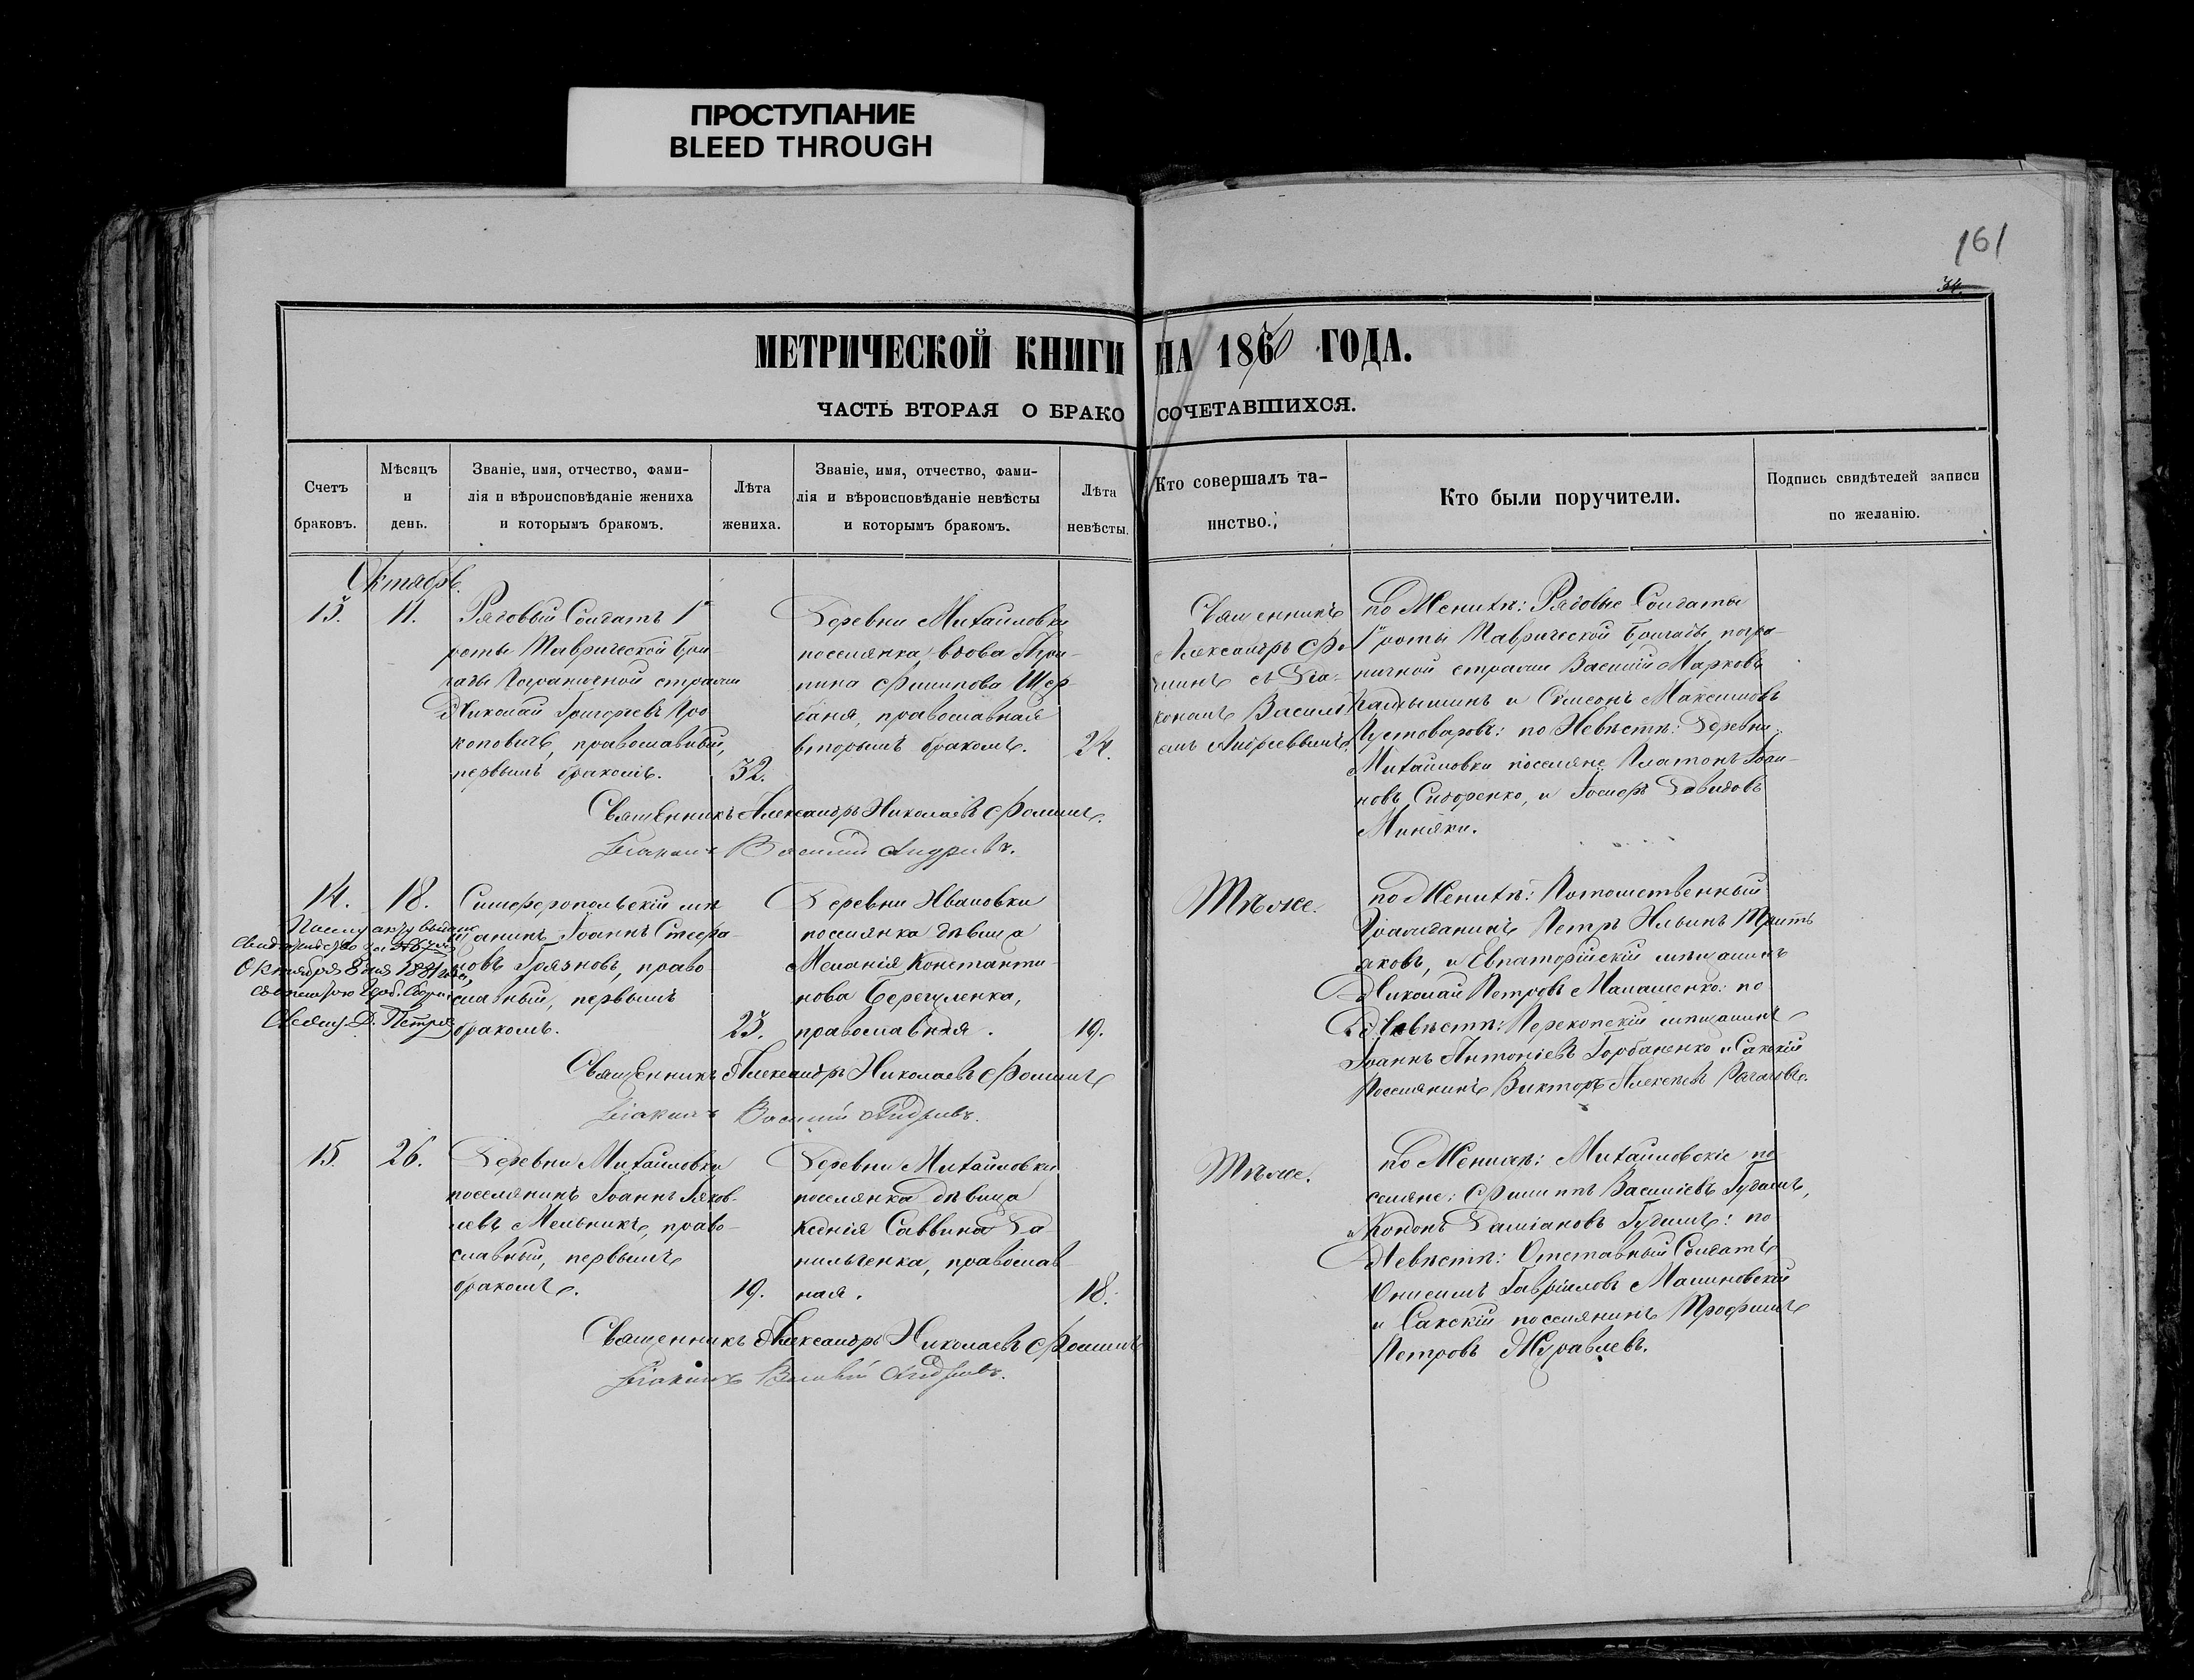 ПРОСТУПАНИЕ
BLEED THROUGH
161
34.
МЕТРИЧЕСКОЙ КНИГИ НА 1870 ГОДА.
ЧАСТЬ ВТОРАЯ О БРАКОСОЧЕТАВШИХСЯ.
Счетъ браковъ.
Мѣсяцъ и день.
Званіе, имя, отчество, фами-
лія и вѣроисповѣданіе жениха
и которымъ бракомъ.
Лѣта жениха.
Званіе, имя, отчество, фами-
лія и вѣроисповѣданіе невѣсты
и которымъ бракомъ.
Лѣта невѣсты.
Кто совершалъ та-
инство.
Кто были поручители.
Подпись свидѣтелей записи
по желанію.
Октябрь.
13.
11.
Рядовый Солдатъ 1й
роты Таврической Бри-
гады Пограничной стражи
Николай Григорьевъ Про
коповичъ, православный,
первымъ бракомъ.
32.
Деревни Михайловки
поселянка, вдова Агри-
пина Филипова Щер-
баня, православная
вторымъ бракомъ.
24.
Священникъ
Александръ Фо
минъ съ Діа-
кономъ Василі
емъ Андреевымъ.
по Женихѣ: Рядовые Солдаты
1й роты Таврической Бригады погра-
ничной стражи Василій Марковъ
и Симеонъ Максимовъ
Пустоваровъ: по Невѣстѣ: Деревни
Михайловки поселяне Платонъ Іоан-
новъ Сидоренко, и Іосифъ Давидовъ
Миняки.
Священникъ Александръ Николаевъ Фоминъ.
Діаконъ Василій Андреевъ.
14.
18.
Симферопольскій мѣ
щанинъ Іоаннъ Стефа-
новъ Грязновъ, право
славный, первымъ
бракомъ.
23.
Октября 8 дня 1881 года,
Деревни Ивановки
поселянка дѣвица
Меланія Константи-
нова Берегуленка,
православная.
19.
Тѣже.
по Женихѣ: Потомственный
Гражданинъ Петръ Ильинъ Трить
яковъ, и Евпаторійскій мѣщанинъ
Николай Петровъ Малашенко: по
Невѣстѣ: Перекопскій мѣщанинъ
Іоаннъ Антоніевъ Горбаненко и Сакскій
Поселянинъ Викторъ Алексѣевъ
Священникъ Александръ Николаевъ Фоминъ
Діаконъ Василій Андреевъ.
15.
26.
Деревни Михайловки
поселянинъ Іоаннъ Іаков-
левъ Мельникъ, право-
славный, первымъ
бракомъ.
19.
Деревни Михайловки
поселянка дѣвица
Ксенія Саввина Да
нильченка, православ
ная.
18.
Тѣже.
по Женихѣ: Михайловскіе по
селяне: Филиппъ Василіевъ Гудымъ,
и Кононъ Даміановъ Гудымъ: по
Невѣстѣ: Отставный Солдатъ
Онисимъ Гавріиловъ Малиновскій
и Сакскій поселянинъ Трофимъ
Петровъ Журавлевъ.
Священникъ Александръ Николаевъ Фоминъ
Діаконъ Василій Андреевъ.